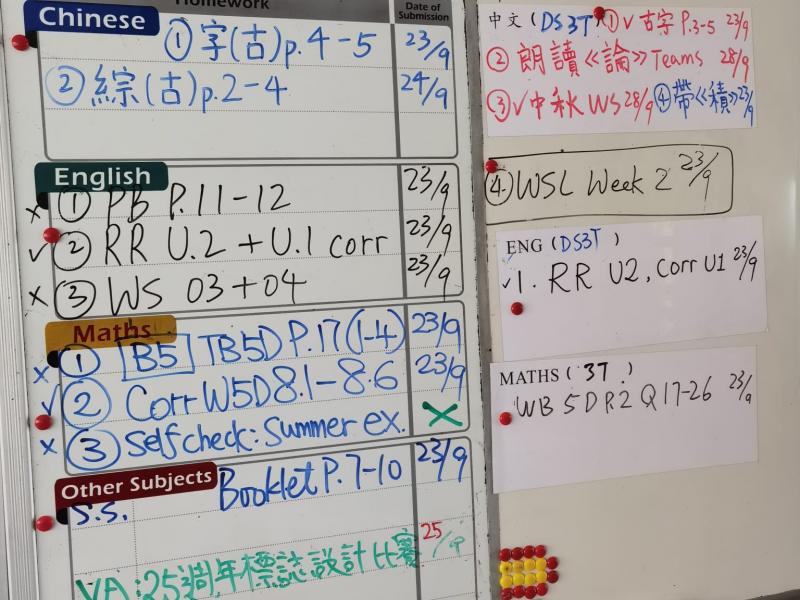 Homework
Date of Submission
Chinese
① 字(古)p.4-5 23/9
② 綜(古)p.2-4 24/9
English
× ① PB P.11-12 23/9
✓ ② RR U.2 + U.1 corr 23/9
× ③ WS 03+04 23/9
Maths
× ① B5 TB5D P.17(1-4) 23/9
✓ ② Corr W5D8.1-8.6 23/9
× ③ Selfcheck: Summer ex. ×
Other Subjects
S.S. Booklet P.7-10 23/9
VA:25週年標誌設計比賽 25/9
中文 ( DS3T ) ①✓古字 P.3-5 23/9
② 朗讀《論》Teams 28/9
③✓中秋 WS 28/9 ④帶《積》23/9
④ WSL Week 2 23/9
ENG (DS3T )
✓1. RR U2, Corr U1 23/9
MATHS ( 3T )
WB 5D P.2 Q17-26 23/9